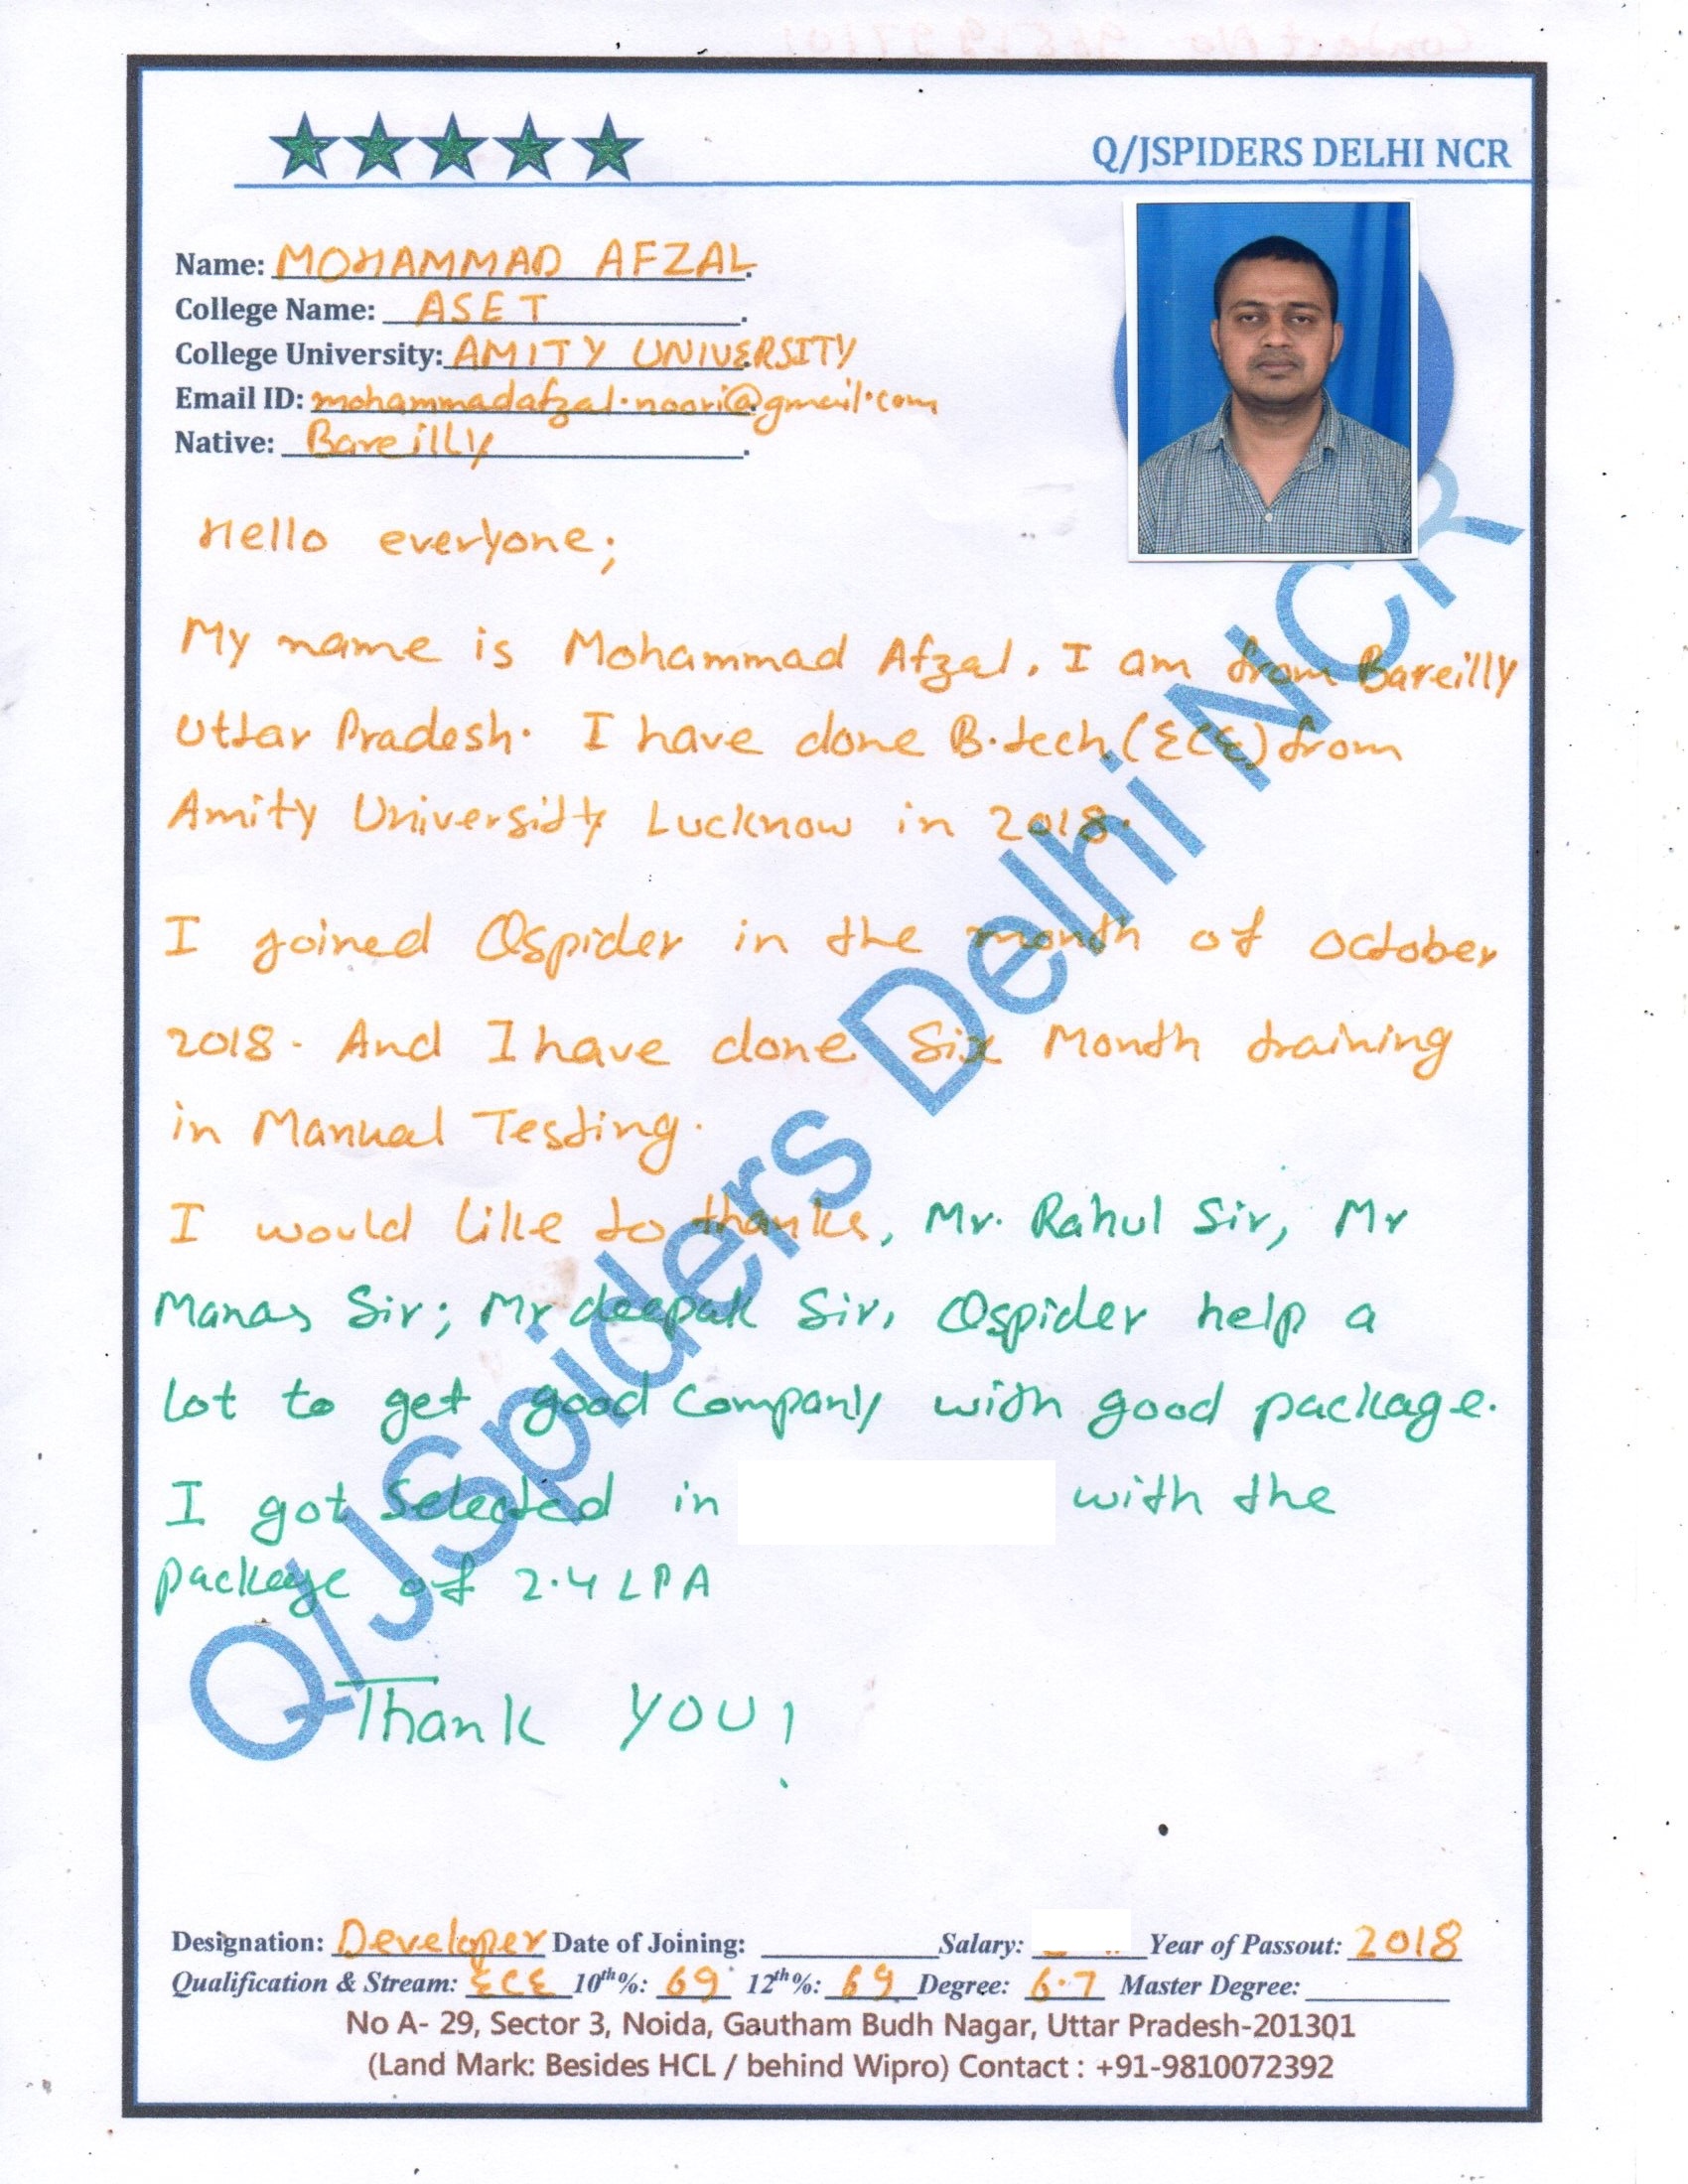 Q/JSPIDERS DELHI NCR
Name: MOHAMMAD AFZAL.
College Name: ASET.
College University: AMITY UNIVERSITY
Email ID: mohammadafzal.noori@gmail.com
Native: Bareilly.
Hello everyone;
My name is Mohammad Afzal. I am from Bareilly
Uttar Pradesh. I have done B.tech.(ECE) from
Amity University Lucknow in 2018.
I joined Qspider in the month of October
2018. And I have done Six Month training
in Manual Testing.
I would like to thanks, Mr. Rahul Sir, Mr
Manas Sir; Mr deepak Sir, Qspider help a
lot to get good Company with good package.
I got Selected in with the
package of 2.4 LPA
Thank YOU!
Q/JSpiders Delhi NCR
Designation: Developer Date of Joining: Salary: Year of Passout: 2018
Qualification & Stream: ECE 10th%: 69 12th%: 69 Degree: 6.7 Master Degree:
No A- 29, Sector 3, Noida, Gautham Budh Nagar, Uttar Pradesh-201301
(Land Mark: Besides HCL / behind Wipro) Contact : +91-9810072392